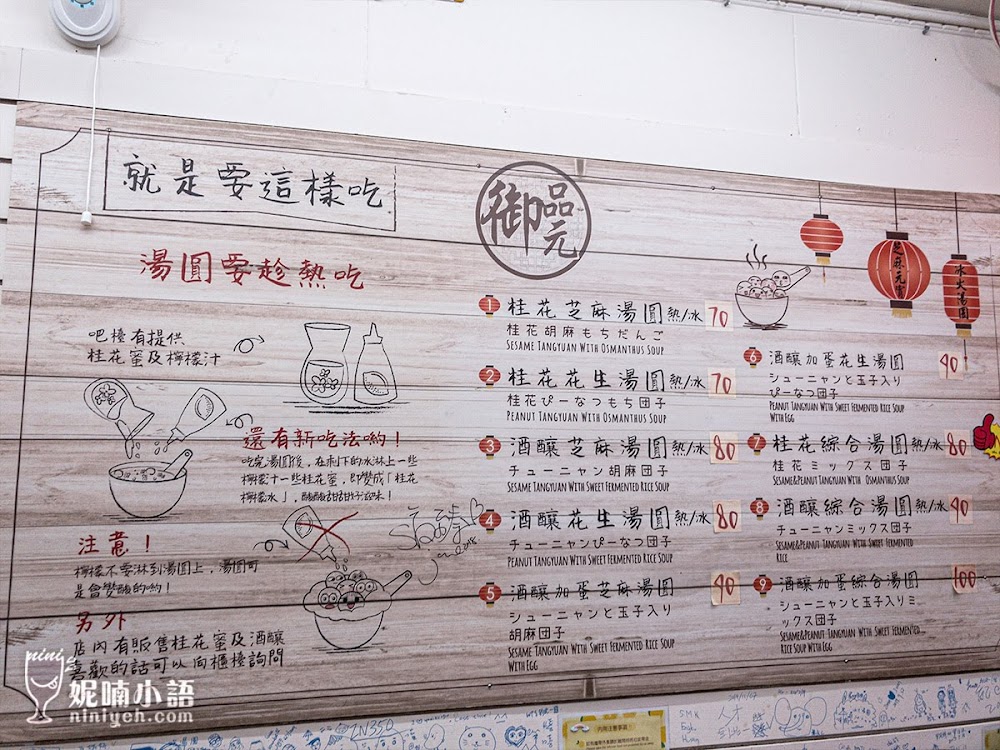 就是要這樣吃
湯圓要趁熱吃
吧檯有提供
桂花蜜及檸檬汁
還有新吃法喲！
吃完湯圓後，在剩下的冰淋上一些
檸檬汁一些桂花蜜，即變成「桂花
檸檬冰」，酸酸甜甜好滋味！
注意！
檸檬不要淋到湯圓上，湯圓可
是會變酸的喲！
另外
店內有販售桂花蜜及酒釀
喜歡的話可以向櫃檯詢問
御品元
1 桂花芝麻湯圓 熱/冰 70
桂花胡麻もちだんご
Sesame Tangyuan With Osmanthus Soup
2 桂花花生湯圓 熱/冰 70
桂花ぴーなつもち団子
Peanut Tangyuan With Osmanthus Soup
3 酒釀芝麻湯圓 熱/冰 80
チューニャン胡麻団子
Sesame Tangyuan With Sweet Fermented Rice Soup
4 酒釀花生湯圓 熱/冰 80
チューニャンぴーなつ団子
Peanut Tangyuan With Sweet Fermented Rice Soup
5 酒釀加蛋芝麻湯圓 90
シューニャンと玉子入り
胡麻団子
Sesame Tangyuan With Sweet Fermented Rice Soup
With Egg
芝麻元宵
冰火湯圓
6 酒釀加蛋花生湯圓 90
シューニャンと玉子入り
ぴーなつ団子
Peanut Tangyuan With Sweet Fermented Rice Soup
With Egg
7 桂花綜合湯圓 熱/冰 80
桂花ミックス団子
Sesame&Peanut Tangyuan With Osmanthus Soup
8 酒釀綜合湯圓 熱/冰 90
チューニャンミックス団子
Sesame&Peanut Tangyuan With Sweet Fermented
Rice
9 酒釀加蛋綜合湯圓 100
シューニャンと玉子入りミ
ックス団子
Sesame&Peanut Tangyuan With Sweet Fermented
Rice Soup With Egg
nini
妮喃小語
niniyeh.com